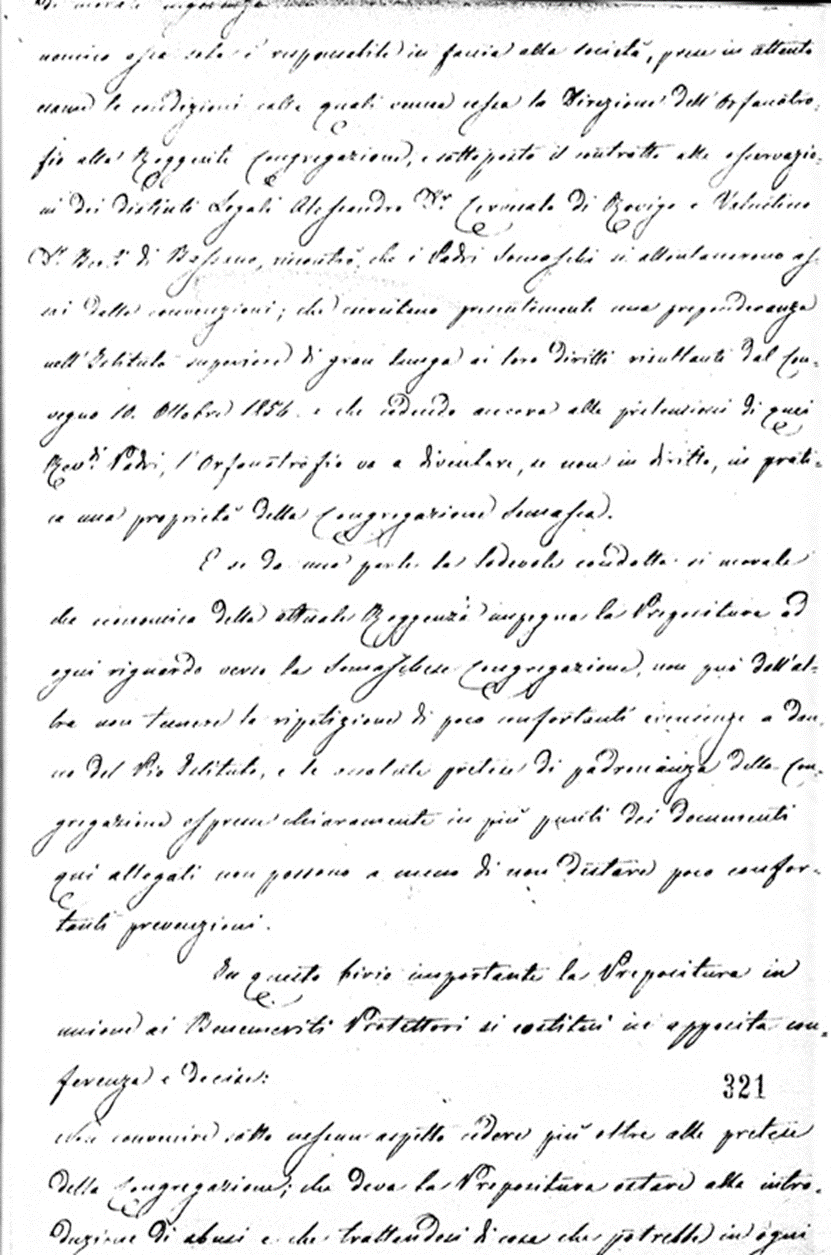 di morale ingerenza
nomica essa sola è responsabile in faccia alla società, prese in attento
esame le condizioni colle quali venne cessa la Direzione dell'Orfanotro,
fio alla Reggente Congregazione, e sottoposto il contratto alle osservazio=
ni dei distinti Legali Alessandro Dr. Cervesato di Rovigo e Valentino
Dr. di Bassano, riscontrò, che i Padri Somaschi si allontanarono as=
sai dalle convenzioni; che esercitano presentemente una preponderanza
nell'Istituto superiore di gran lunga ai loro diritti risultanti dal Con=
vegno 10. Ottobre 1854. e che cedendo ancora alle pretensioni di quei
Rev.di Padri, l'Orfanotrofio va a diventare, se non in diritto, in prati=
ca una proprietà della Congregazione Somasca.
E se da una parte la lodevole condotta si morale
che economica della attuale Reggenza impegna la Prepositura ad
ogni riguardo verso la Somaschese Congregazione, non può dall'al=
tra non temere la ripetizione di poco confortanti evenienze a dan,
no del Pio Istituto, e le assolute pretese di padronanza della Con=
gregazione espresse chiaramente in più punti dei documenti
qui allegati non possono a meno di non destare poco confor=
tanti prevenzioni.
In questo bivio importante la Prepositura in
unione ai Benemeriti Protettori si costituì in apposita con=
ferenza e decise:
321
Non convenire sotto nessun aspetto cedere più oltre alle pretese
della Congregazione; che deva la Prepositura ostare alla intro=
duzione di abusi e che trattandosi di cosa che potrebbe in ogni